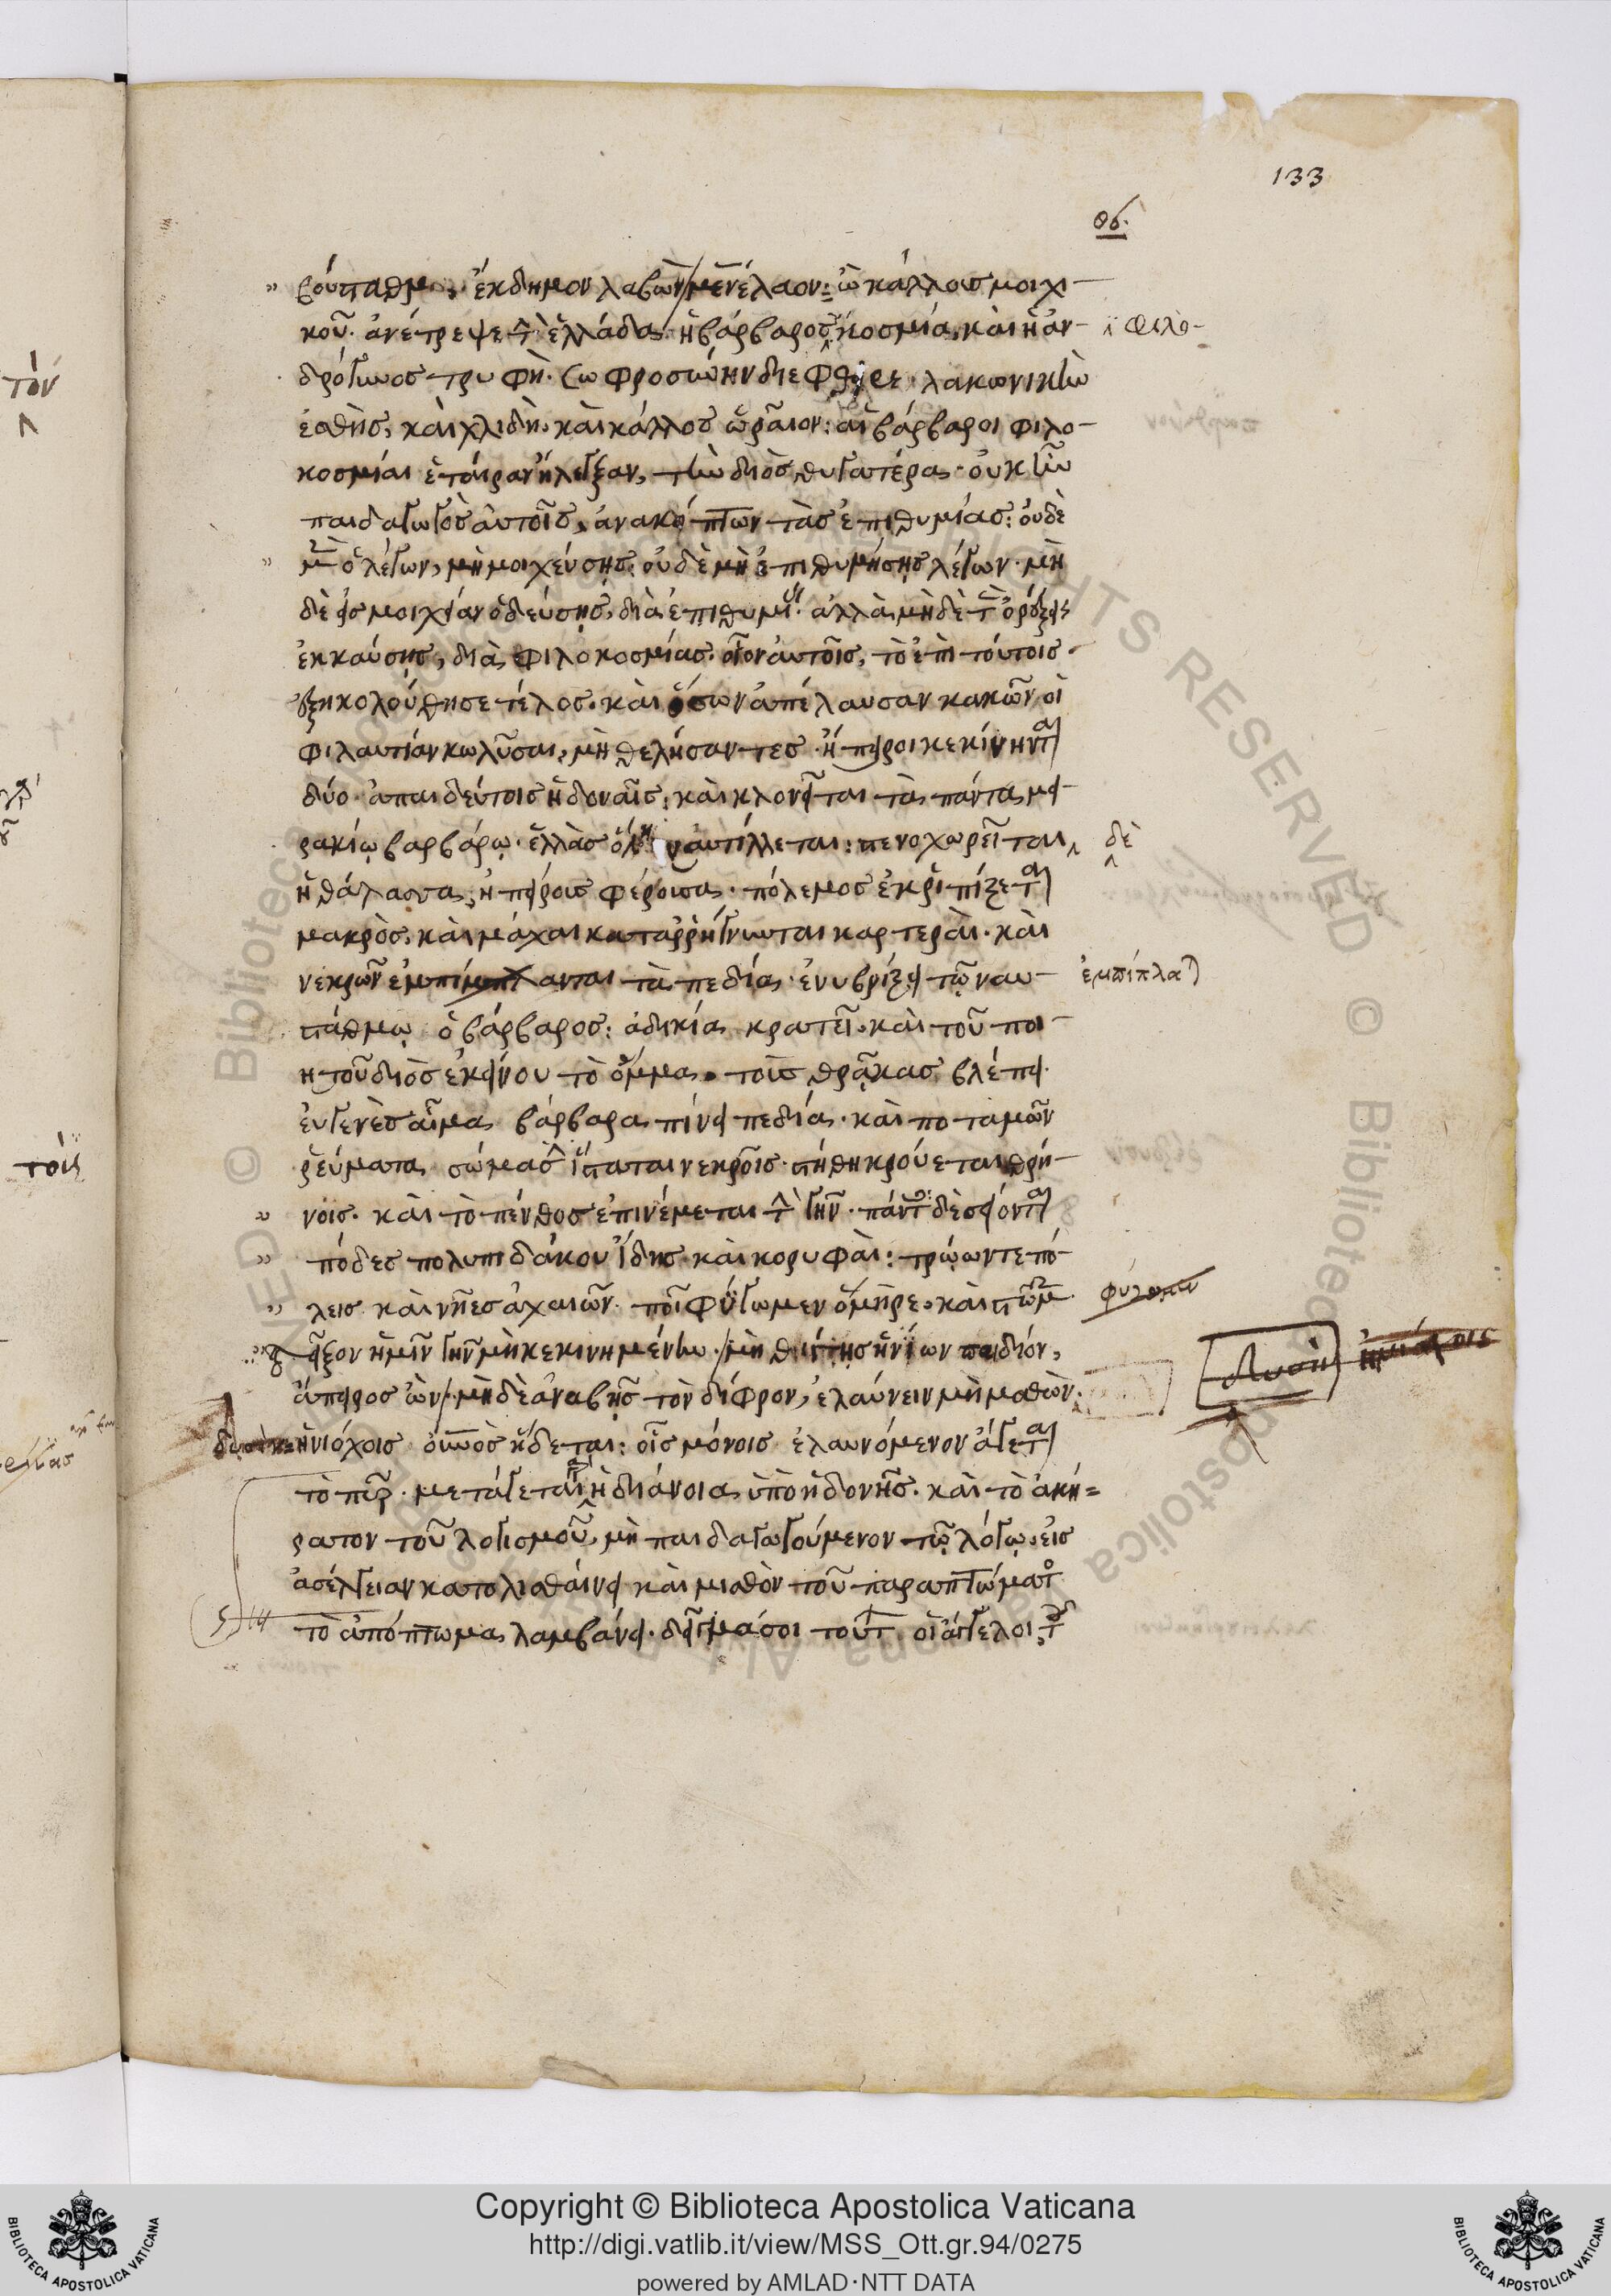 133
θϛ.
βούσταθμα, ἔκδημον λαβὼν μενέλαον: ὦ κάλλους μοιχι-
κοῦ. ἀνέτρεψε τὴν ἑλλάδα ἡ βάρβαρος κοσμία, καὶ ἡ ἀν- φιλο-
δρόγυνος τρυφή. σωφροσύνην διέφθειρε λακωνικὴν
ἐσθὴς, καὶ χλιδὴ, καὶ κάλλος ὡραῖον: αἱ βάρβαροι φιλο-
κοσμίαι ἑταίραν ἤλεγξαν, τὴν διὸς θυγατέρα. οὐκ ἦν
παιδαγωγὸς αὐτοῖς, ἀνακόπτων τὰς ἐπιθυμίας: οὐδὲ
μὴν ὁ λέγων, μὴ μοιχεύσης: οὐδὲ μὴ ἐπιθυμήσης λέγων. μὴ
δὲ εἰς μοιχείαν ὁδεύσης, διὰ ἐπιθυμίας. ἀλλὰ μὴ δὲ τὰς ὀρέξεις
ἐκκαύσης, διὰ φιλοκοσμίας. οἷον αὐτοῖς, τὸ ἐπὶ τούτοις
ἐξηκολούθησε τέλος. καὶ ὅσων ἀπέλαυσαν κακῶν οἱ
φιλαυτίαν κωλῦσαι, μὴ θελήσαντες. ἤπειροι κεκίνηνται
δύο. ἀπαιδεύτοις ἡδοναῖς: καὶ κλονεῖται τὰ πάντα μει-
ρακίῳ βαρβάρῳ. ἑλλὰς ὅλη ναυτίλλεται: στενοχωρεῖται δὲ
ἡ θάλασσα, ἠπείρους φέρουσα. πόλεμος ἐκριπίζεται
μακρὸς, καὶ μάχαι καταρρήγνυνται καρτεραί. καὶ
νεκρῶν ἐμπίμπλανται τὰ πεδία. ἐνυβρίζει τῷ ναυ- ἐμπίπλα
στάθμῳ ὁ βάρβαρος: ἀδικία κρατεῖ. καὶ τοῦ ποι-
ητοῦ διὸς ἐκείνου τὸ ὄμμα. τοὺς θρᾷκας βλέπει.
εὐγενὲς αἷμα βάρβαρα πίνει πεδία. καὶ ποταμῶν
ῥεύματα σώμασιν ἵσταται νεκροῖς. στήθη κρούεται θρή-
νοις. καὶ τὸ πένθος ἐπινέμεται τὴν γῆν. πάντες δὲ σείονται
πόδες πολυπιδάκου ἴδης. καὶ κορυφαί: τρώων τε πό-
λεις καὶ νῆες ἀχαιῶν. ποῖ φύγωμεν ὅμηρε. καὶ στῶμεν
δεῖξον ἡμῖν γῆν μὴ κεκινημένην. μὴ θίγης ἡνίων παιδίον,
ἄπειρος ὤν. μὴ δὲ ἀναβῇς τὸν δίφρον, ἐλαύνειν μὴ μαθών.
ἡνιόχοις οὐρανὸς ἥδεται: οἷς μόνοις ἐλαυνόμενον ἄγεται
τὸ πῦρ. μετάγεται ἡ διάνοια ὑπὸ ἡδονῆς. καὶ τὸ ἀκή-
ρατον τοῦ λογισμοῦ, μὴ παιδαγωγούμενον τῷ λόγῳ, εἰς
ἀσέλγειαν κατολισθαίνει καὶ μισθὸν τοῦ παραπτώματος
τὸ ἀπόπτωμα λαμβάνει. δεῖγμά σοι τούτων οἱ ἄγγελοι, τοῦ